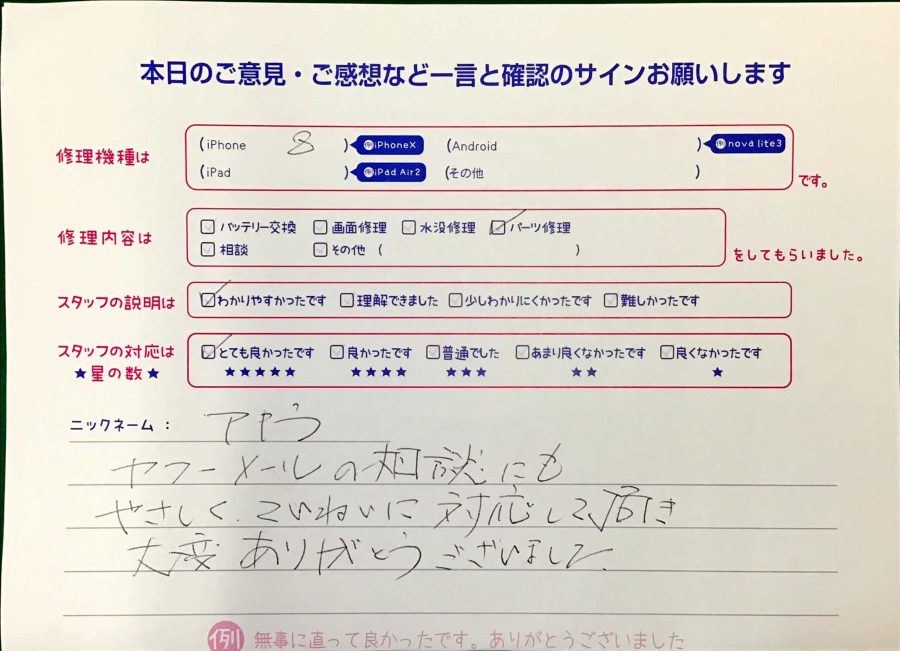 本日のご意見・ご感想など一言と確認のサインお願いします
修理機種は (iPhone 8 ) iPhoneX (Android ) nova lite3
(iPad ) iPad Air2 (その他 ) です。
修理内容は □バッテリー交換 □画面修理 □水没修理 ☑パーツ修理
□相談 □その他 ( ) をしてもらいました。
スタッフの説明は ☑わかりやすかったです □理解できました □少しわかりにくかったです □難しかったです
スタッフの対応は ☑とても良かったです □良かったです □普通でした □あまり良くなかったです □良くなかったです
★星の数★ ★★★★★ ★★★★ ★★★ ★★ ★
ニックネーム：
ヤフーメールの相談にも
やさしく、ていねいに対応して頂き
大変ありがとうございました
例 無事に直って良かったです。ありがとうございました